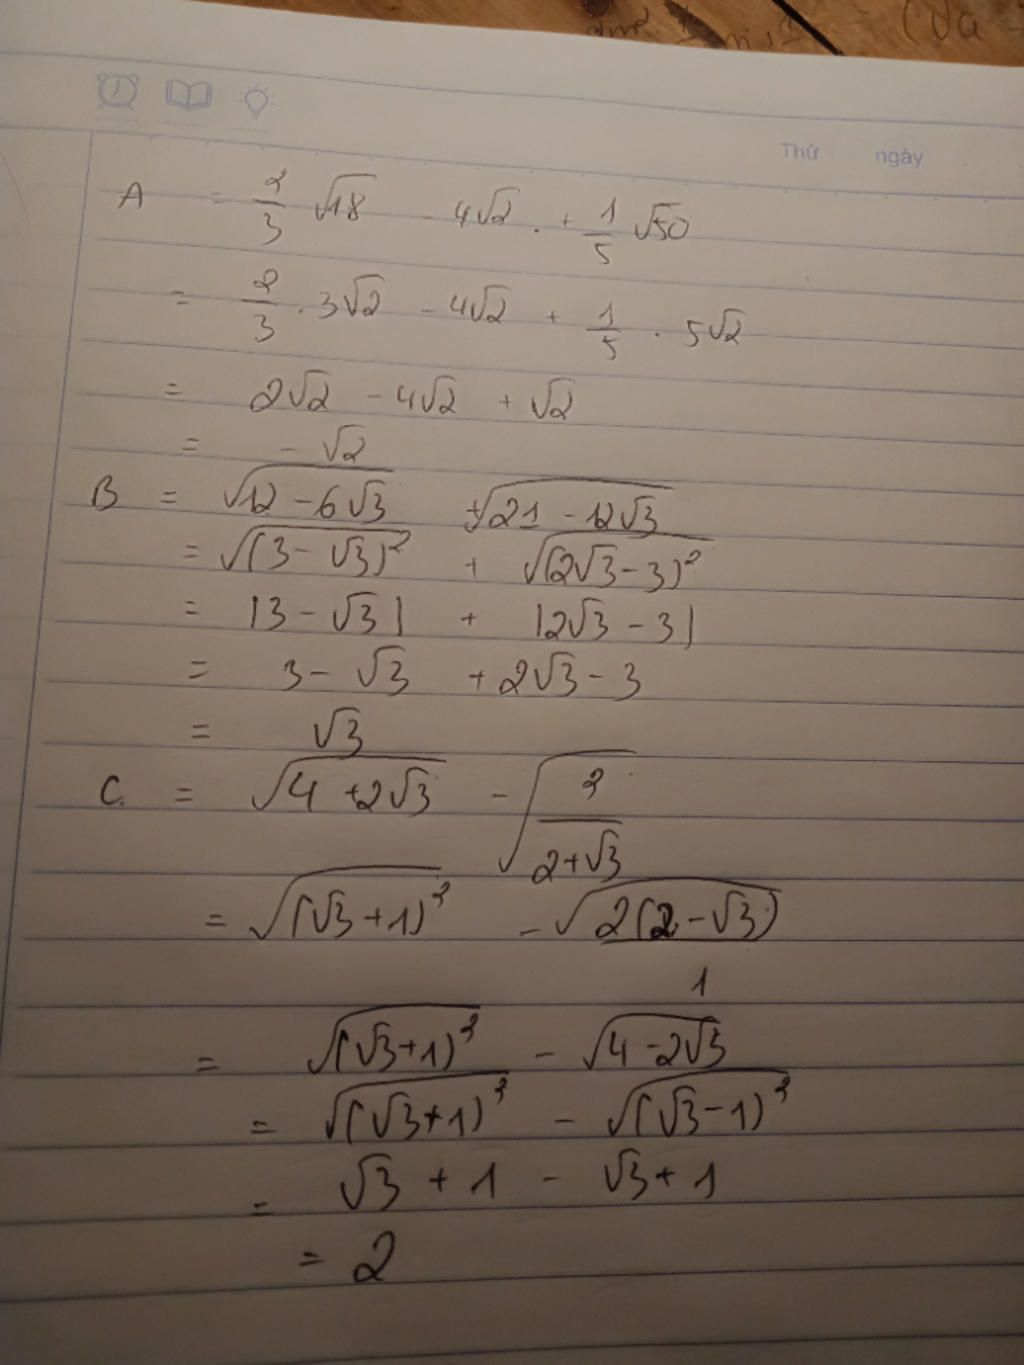 Thứ ngày
A = 2/3 √18 - 4√2 . + 1/5 √50
= 2/3 . 3√2 - 4√2 + 1/5 . 5√2
= 2√2 - 4√2 + √2
= - √2
B = √(12 - 6√3) + √(21 - 12√3)
= √((3 - √3)²) + √((2√3 - 3)²)
= |3 - √3| + |2√3 - 3|
= 3 - √3 + 2√3 - 3
= √3
C. = √(4 + 2√3) - √(2/(2+√3))
= √((√3 + 1)²) - √(2(2 - √3)/1)
= √((√3+1)²) - √(4 - 2√3)
= √((√3+1)²) - √((√3-1)²)
= √3 + 1 - √3 + 1
= 2